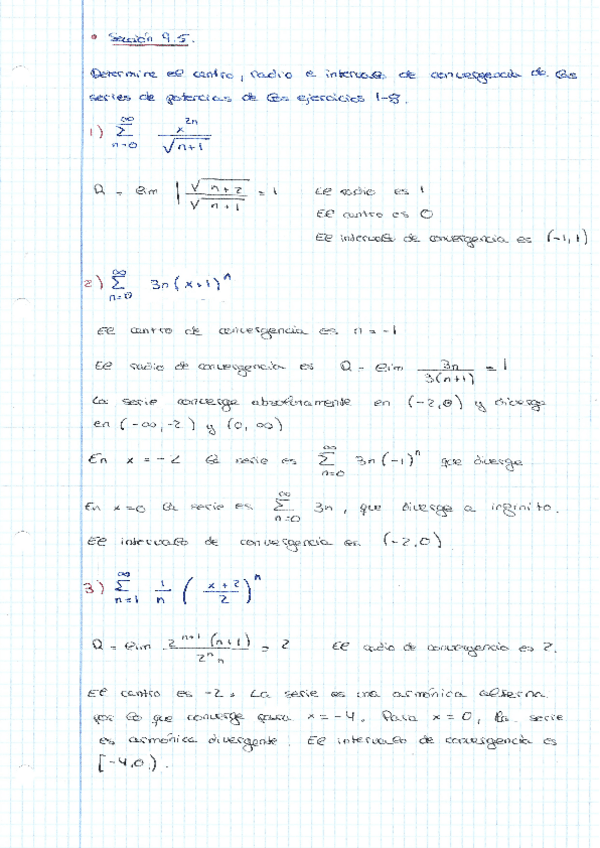 • Sección 9.5.
Determine el centro, radio e intervalo de convergencia de las
series de potencias de los ejercicios 1-8.
1) ∞ Σ n=0 x^2n / √(n+1)
R = lim | √(n+2) / √(n+1) = 1 El radio es 1
El centro es 0
El intervalo de convergencia es (-1,1)
2) ∞ Σ n=0 3n(x+1)^n
El centro de convergencia es n = -1
El radio de convergencia es R = lim 3n / 3(n+1) = 1
La serie converge absolutamente en (-2,0) y diverge
en (-∞,-2) y (0,∞)
En x = -2 la serie es ∞ Σ n=0 3n(-1)^n que diverge.
En x=0 la serie es ∞ Σ n=0 3n, que diverge a infinito.
El intervalo de convergencia es (-2,0)
3) ∞ Σ n=1 1/n ( (x+2)/2 )^n
R = lim 2^(n+1) (n+1) / 2^n n = 2 El radio de convergencia es 2.
El centro es -2. La serie es una armónica alterna
por lo que converge para x = -4. Para x = 0, la serie
es armónica divergente. El intervalo de convergencia es
[-4,0).